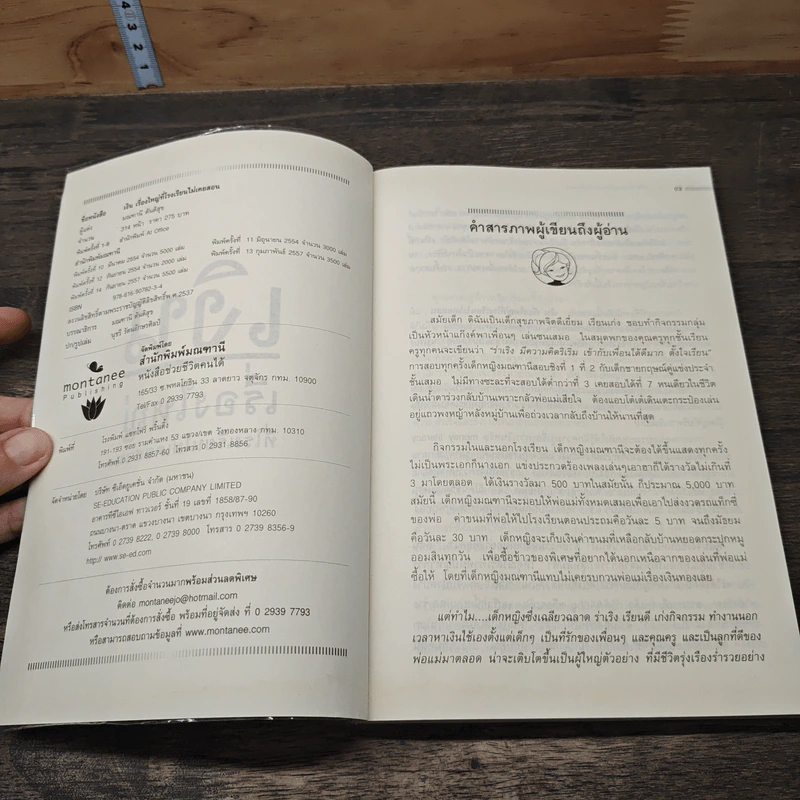 4 3 2 1
ชื่อหนังสือ เงิน เรื่องใหญ่ที่โรงเรียนไม่เคยสอน
ผู้แต่ง มณฑานี ตันติสุข
จำนวน 314 หน้า ราคา 275 บาท
พิมพ์ครั้งที่ 1-8 สำนักพิมพ์ At Office
สำนักพิมพ์มณฑานี
พิมพ์ครั้งที่ 10 มีนาคม 2554 จำนวน 5000 เล่ม พิมพ์ครั้งที่ 11 มิถุนายน 2554 จำนวน 3000 เล่ม
พิมพ์ครั้งที่ 12 กันยายน 2554 จำนวน 2000 เล่ม พิมพ์ครั้งที่ 13 กุมภาพันธ์ 2557 จำนวน 3500 เล่ม
พิมพ์ครั้งที่ 14 กันยายน 2557 จำนวน 5500 เล่ม
ISBN 978-616-90782-3-4
สงวนลิขสิทธิ์ตามพระราชบัญญัติลิขสิทธิ์พ.ศ.2537
บรรณาธิการ มณฑานี ตันติสุข
ปก/รูปเล่ม นุชรี รัตนอักษรศิลป์
จัดพิมพ์โดย
สำนักพิมพ์มณฑานี
หนังสือช่วยชีวิตคนได้
165/33 ซ.พหลโยธิน 33 ลาดยาว จตุจักร กทม. 10900
Tel/Fax 0 2939 7793
montanee
Publishing
พิมพ์ที่ โรงพิมพ์ แฮทไฟว์ พริ้นติ้ง
191-193 ซอย รามคำแหง 53 แขวง/เขต วังทองหลาง กทม. 10310
โทรศัพท์ 0 2931 8857-60 โทรสาร 0 2931 8856.
จัดจำหน่ายโดย บริษัท ซีเอ็ดยูเคชั่น จำกัด (มหาชน)
SE-EDUCATION PUBLIC COMPANY LIMITED
อาคารทีซีไอเอฟ ทาวเวอร์ ชั้นที่ 19 เลขที่ 1858/87-90
ถนนบางนา-ตราด แขวงบางนา เขตบางนา กรุงเทพฯ 10260
โทรศัพท์ 0 2739 8222, 0 2739 8000 โทรสาร 0 2739 8356-9
http:// www.se-ed.com
ต้องการสั่งซื้อจำนวนมากพร้อมส่วนลดพิเศษ
ติดต่อ montaneejo@hotmail.com
หรือส่งโทรสารจำนวนที่ต้องการสั่งซื้อ พร้อมที่อยู่จัดส่ง ที่ 0 2939 7793
หรือสามารถสอบถามข้อมูลที่ www.montanee.com
คำสารภาพผู้เขียนถึงผู้อ่าน
สมัยเด็ก ดิฉันเป็นเด็กสุขภาพจิตดีเยี่ยม เรียนเก่ง ชอบทำกิจกรรมกลุ่ม
เป็นหัวหน้าแก๊งค์พาเพื่อนๆ เล่นซนเสมอ ในสมุดพกของคุณครูทุกชั้นเรียน
ครูทุกคนจะเขียนว่า “ร่าเริง มีความคิดริเริ่ม เข้ากับเพื่อนได้ดีมาก ตั้งใจเรียน”
การสอบทุกครั้งเด็กหญิงมณฑานีสอบชิงที่ 1 ที่ 2 กับเด็กชายกฤษณ์คู่แข่งประจำ
ชั้นเสมอ ไม่มีทางซะละที่จะสอบได้ต่ำกว่าที่ 3 เคยสอบได้ที่ 7 หนเดียวในชีวิต
เดินน้ำตาร่วงกลับบ้านเพราะกลัวพ่อแม่เสียใจ ต้องแอบโต๋เต๋เดินเตะกระป๋องเล่น
อยู่แถวพงหญ้าหลังหมู่บ้านเพื่อถ่วงเวลากลับถึงบ้านให้นานที่สุด
กิจกรรมในและนอกโรงเรียน เด็กหญิงมณฑานีจะต้องได้ขึ้นแสดงทุกครั้ง
ไม่เป็นพระเอกก็นางเอก แข่งประกวดร้องเพลงเล่นๆเอาฮาก็ได้รางวัลไม่เกินที่
3 มาโดยตลอด ได้เงินรางวัลมา 500 บาทในสมัยนั้น ก็ประมาณ 5,000 บาท
สมัยนี้ เด็กหญิงมณฑานีจะมอบให้พ่อแม่ทั้งหมดเสมอเพื่อเอาไปส่งงวดรถแท็กซี่
ของพ่อ ค่าขนมที่พ่อให้ไปโรงเรียนตอนประถมคือวันละ 5 บาท จนถึงมัธยม
คือวันละ 30 บาท เด็กหญิงจะเก็บเงินค่าขนมที่เหลือกลับบ้านหยอดกระปุกหมู
ออมสินทุกวัน เพื่อซื้อข้าวของพิเศษที่อยากได้นอกเหนือจากของเล่นที่พ่อแม่
ซื้อให้ โดยที่เด็กหญิงมณฑานีแทบไม่เคยรบกวนพ่อแม่เรื่องเงินทองเลย
แต่ทำไม....เด็กหญิงซึ่งเฉลียวฉลาด ร่าเริง เรียนดี เก่งกิจกรรม ทำงานนอก
เวลาหาเงินใช้เองตั้งแต่เด็กๆ เป็นที่รักของเพื่อนๆ และคุณครู และเป็นลูกที่ดีของ
พ่อแม่มาตลอด น่าจะเติบโตขึ้นเป็นผู้ใหญ่ตัวอย่าง ที่มีชีวิตรุ่งเรืองร่ำรวยอย่าง